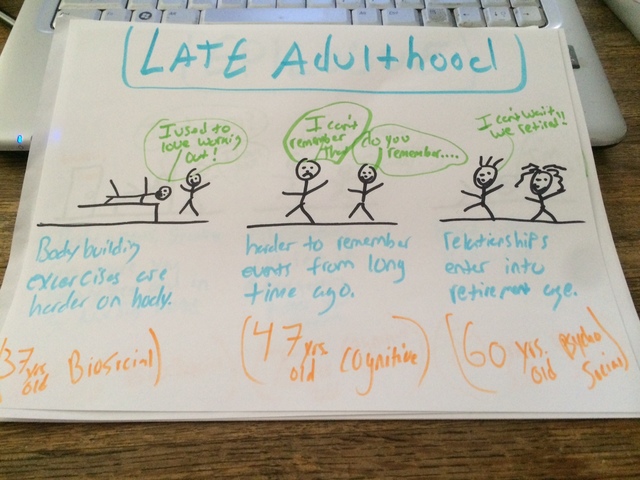 LATE Adulthood
I used to
love working
out!
I can't
remember
that!
do you
remember....
I can't wait
we retired!!
Body building
excercises are
harder on body.
harder to remember
events from long
time ago.
relationships
enter into
retirement age.
37 yrs. old Biosocial)
(47 yrs. old Cognitive)
(60 yrs. old Psycho Social)